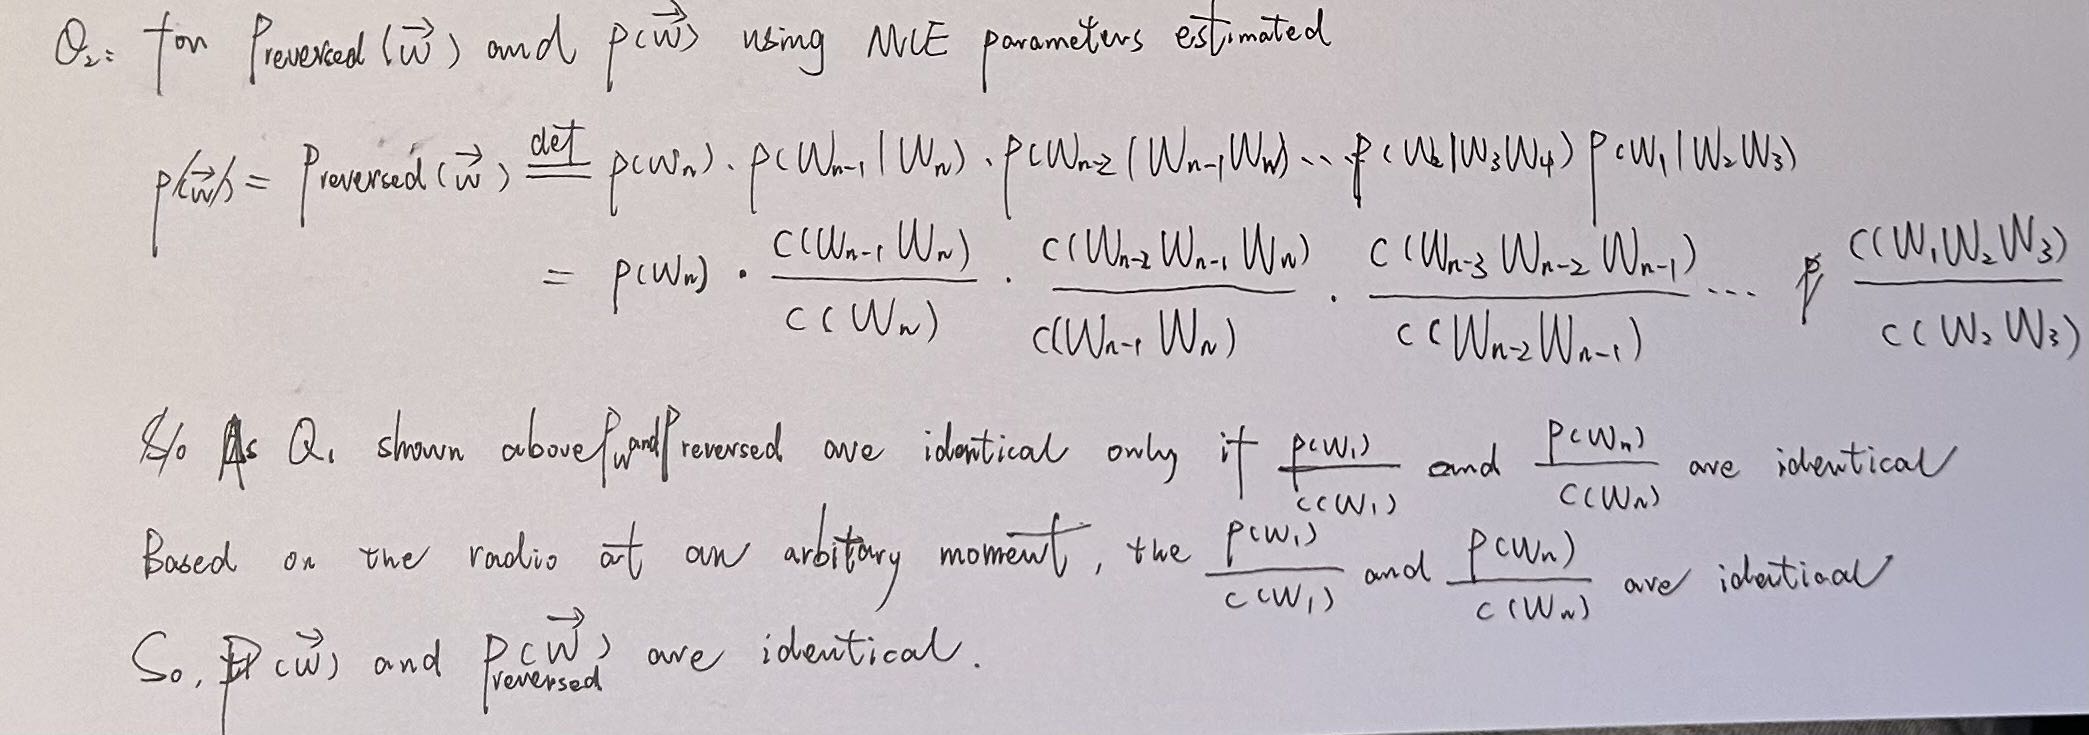 Q₂: for P_reversed(w⃗) and p(w⃗) using MLE parameters estimated
p(w⃗) = P_reversed(w⃗) ≝ p(Wn) · p(Wn-1 | Wn) · p(Wn-2 | Wn-1 Wn) ··· p(W2 | W3 W4) p(W1 | W2 W3)
= p(Wn) · c(Wn-1 Wn) / c(Wn) · c(Wn-2 Wn-1 Wn) / c(Wn-1 Wn) · c(Wn-3 Wn-2 Wn-1) / c(Wn-2 Wn-1) ··· c(W1 W2 W3) / c(W2 W3)
As Q1 shown above P_w and P reversed are identical only if p(W1) / c(W1) and p(Wn) / c(Wn) are identical
Based on the radio at an arbitary moment, the p(W1) / c(W1) and p(Wn) / c(Wn) are identical
So, P(w⃗) and P_reversed(w⃗) are identical.